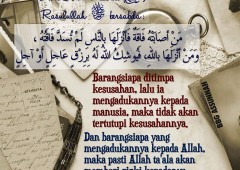 Rasulullah ﷺ bersabda:
مَنْ أَصَابَتْهُ فَاقَةٌ فَأَنْزَلَهَا بِالنَّاسِ لَمْ تُسَدَّ فَاقَتُهُ ،
وَمَنْ أَنْزَلَهَا بِاللهِ، فَيُوشِكُ اللهُ لَهُ بِرِزْقٍ عَاجِلٍ أَوْ آجِلٍ
Barangsiapa ditimpa
kesusahan, lalu ia
mengadukannya kepada
manusia, maka tidak akan
tertutupi kesusahannya.
Dan barangsiapa yang
mengadukannya kepada Allah,
maka pasti Allah ta'ala akan